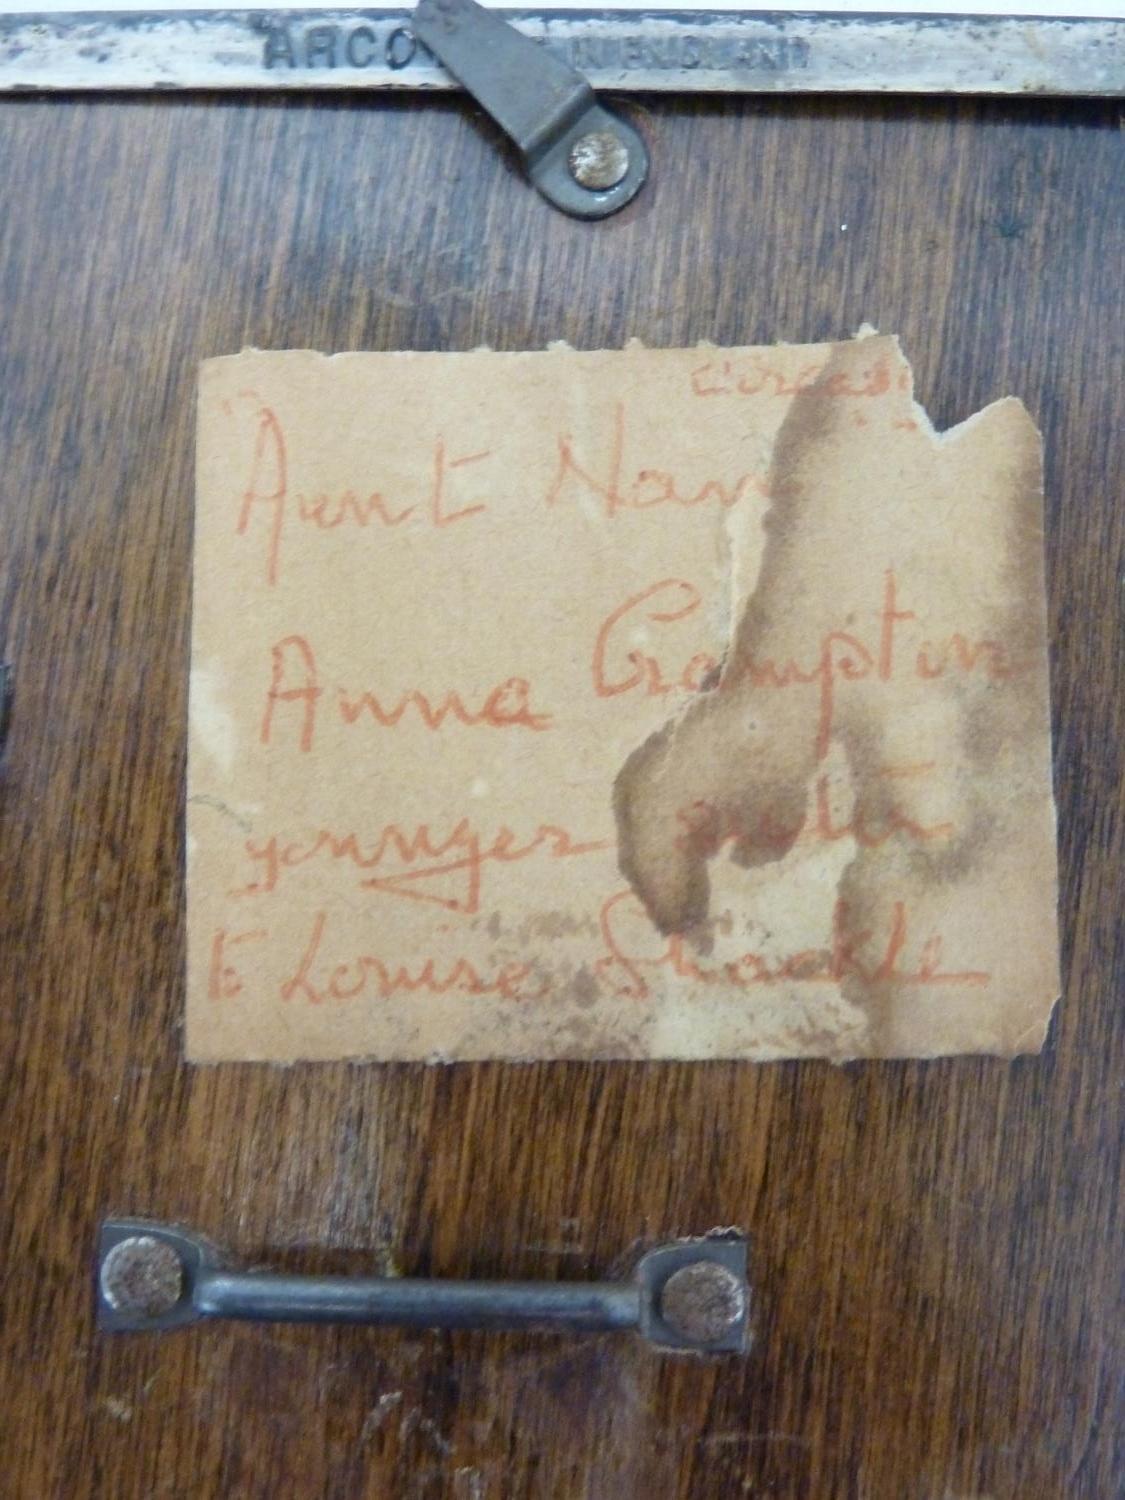 ARCO IN ENGLAND
Aunt Nan
Anna Crompton
younger sister
to Louise Shackle